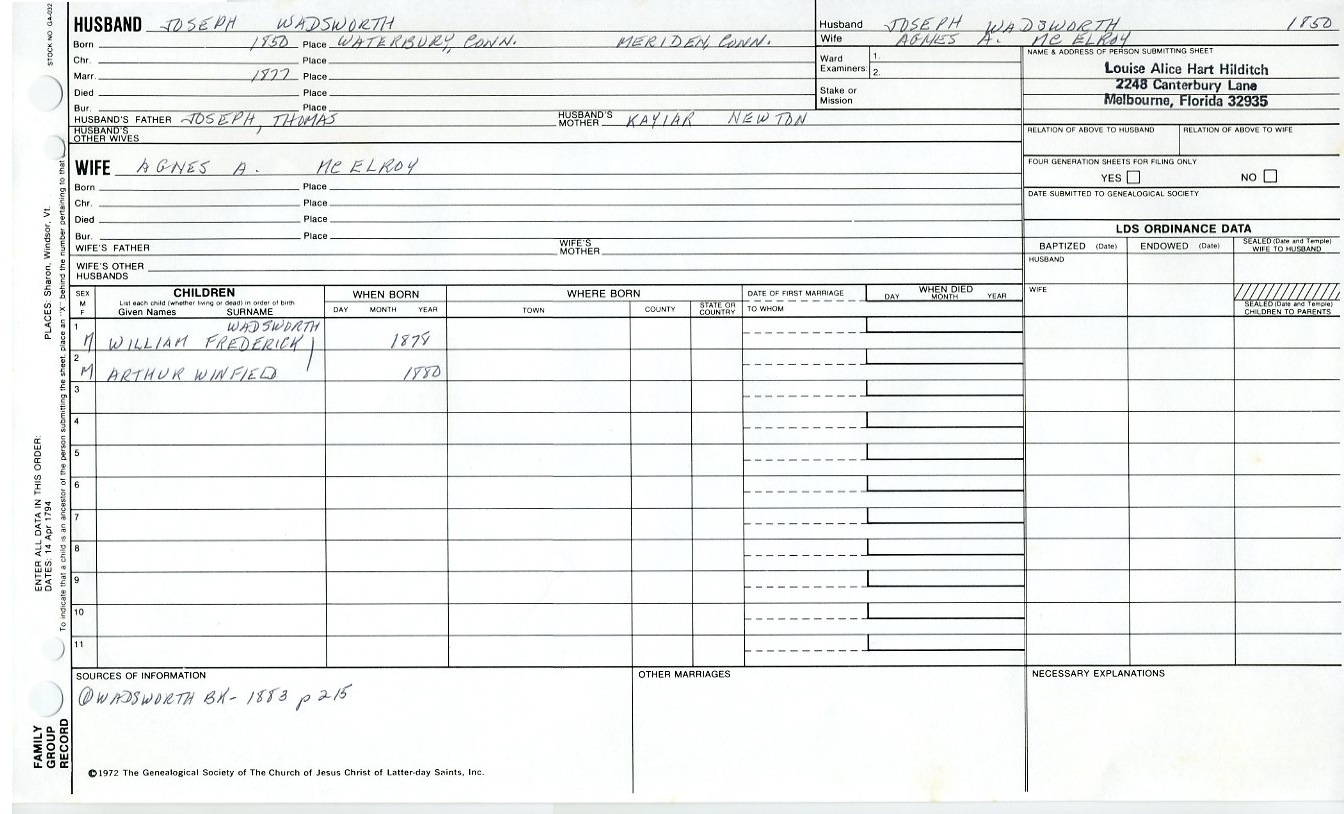 STOCK NO. GA-032
HUSBAND JOSEPH WADSWORTH
Born 1850 Place WATERBURY, CONN. MERIDEN, CONN.
Chr. Place
Marr. 1877 Place
Died Place
Bur. Place
HUSBAND'S FATHER JOSEPH, THOMAS HUSBAND'S MOTHER KAYIAR NEWTON
HUSBAND'S OTHER WIVES
WIFE AGNES A. McELROY
Born Place
Chr. Place
Died Place
Bur. Place
WIFE'S FATHER WIFE'S MOTHER
WIFE'S OTHER HUSBANDS
Husband JOSEPH WADSWORTH 1850
Wife AGNES A. McELROY
Ward Examiners: 1.
2.
Stake or Mission
NAME & ADDRESS OF PERSON SUBMITTING SHEET
Louise Alice Hart Hilditch
2248 Canterbury Lane
Melbourne, Florida 32935
RELATION OF ABOVE TO HUSBAND RELATION OF ABOVE TO WIFE
FOUR GENERATION SHEETS FOR FILING ONLY
YES NO
DATE SUBMITTED TO GENEALOGICAL SOCIETY
LDS ORDINANCE DATA
BAPTIZED (Date) ENDOWED (Date) SEALED (Date and Temple) WIFE TO HUSBAND
HUSBAND
WIFE
SEALED (Date and Temple) CHILDREN TO PARENTS
SEX M F
CHILDREN
List each child (whether living or dead) in order of birth
Given Names SURNAME
WHEN BORN
DAY MONTH YEAR
WHERE BORN
TOWN COUNTY STATE OR COUNTRY
DATE OF FIRST MARRIAGE
TO WHOM
WHEN DIED
DAY MONTH YEAR
WADSWORTH
1 M WILLIAM FREDERICK 1878
2 M ARTHUR WINFIELD 1880
3
4
5
6
7
8
9
10
11
SOURCES OF INFORMATION
① WADSWORTH BK- 1883 p 215
OTHER MARRIAGES
NECESSARY EXPLANATIONS
©1972 The Genealogical Society of The Church of Jesus Christ of Latter-day Saints, Inc.
FAMILY
GROUP
RECORD
ENTER ALL DATA IN THIS ORDER:
DATES: 14 Apr 1794 PLACES: Sharon, Windsor, Vt.
To indicate that a child is an ancestor of the person submitting the sheet, place an "X" behind the number pertaining to that